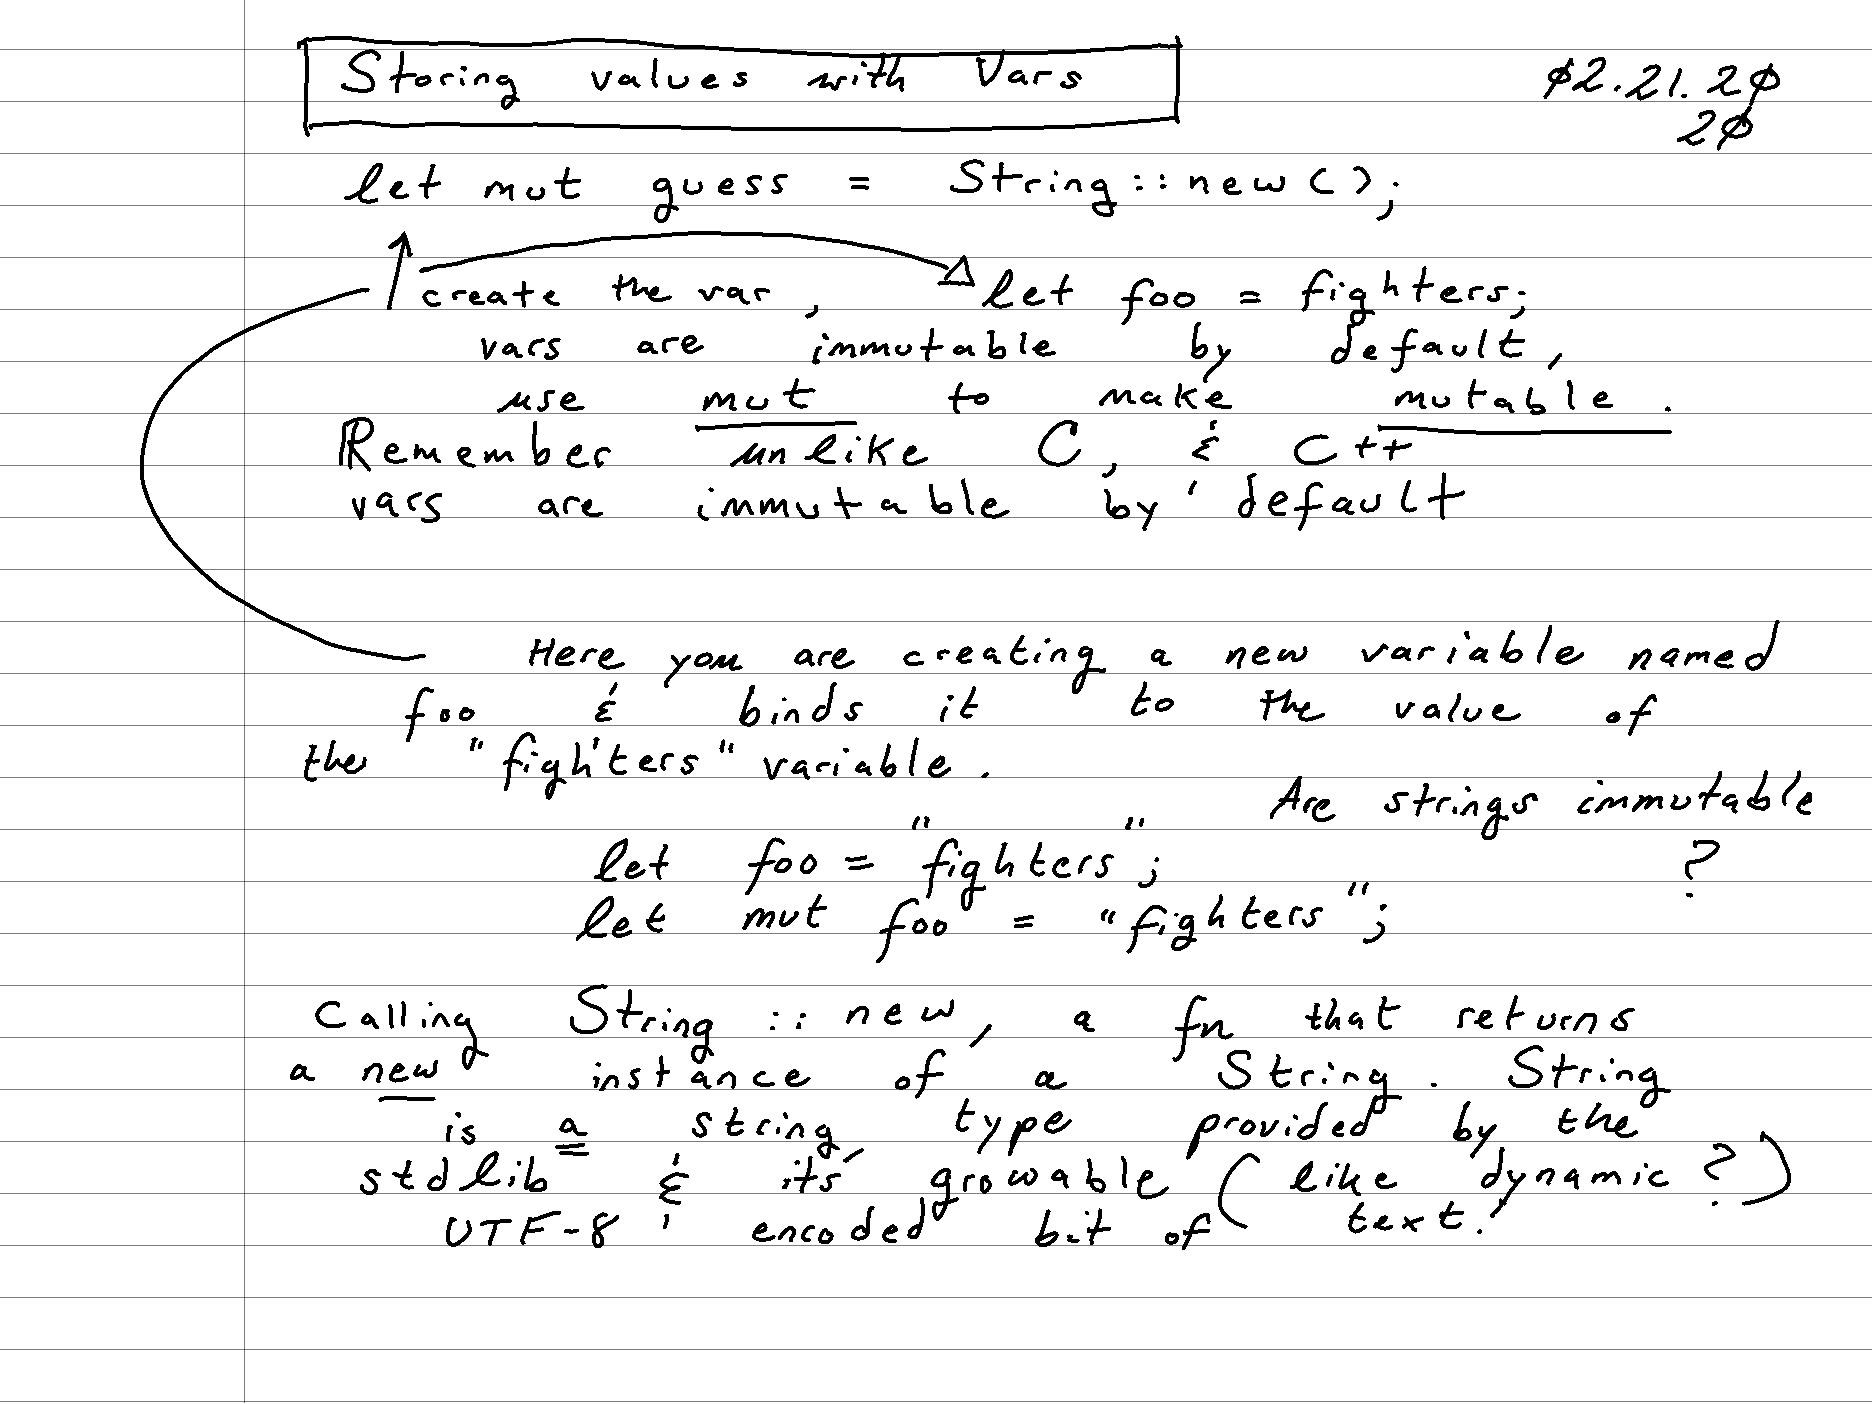 Storing values with Vars
02.21.20
20
let mut guess = String::new();
create the var, let foo = fighters;
vars are immutable by default,
use mut to make mutable.
Remember unlike C, & C++
vars are immutable by default
Here you are creating a new variable named
foo & binds it to the value of
the "fighters" variable.
Are strings immutable
?
let foo = "fighters";
let mut foo = "fighters";
Calling String::new, a fn that returns
a new instance of a String. String
is a string type provided by the
stdlib & it's growable (like dynamic?)
UTF-8 encoded bit of text.